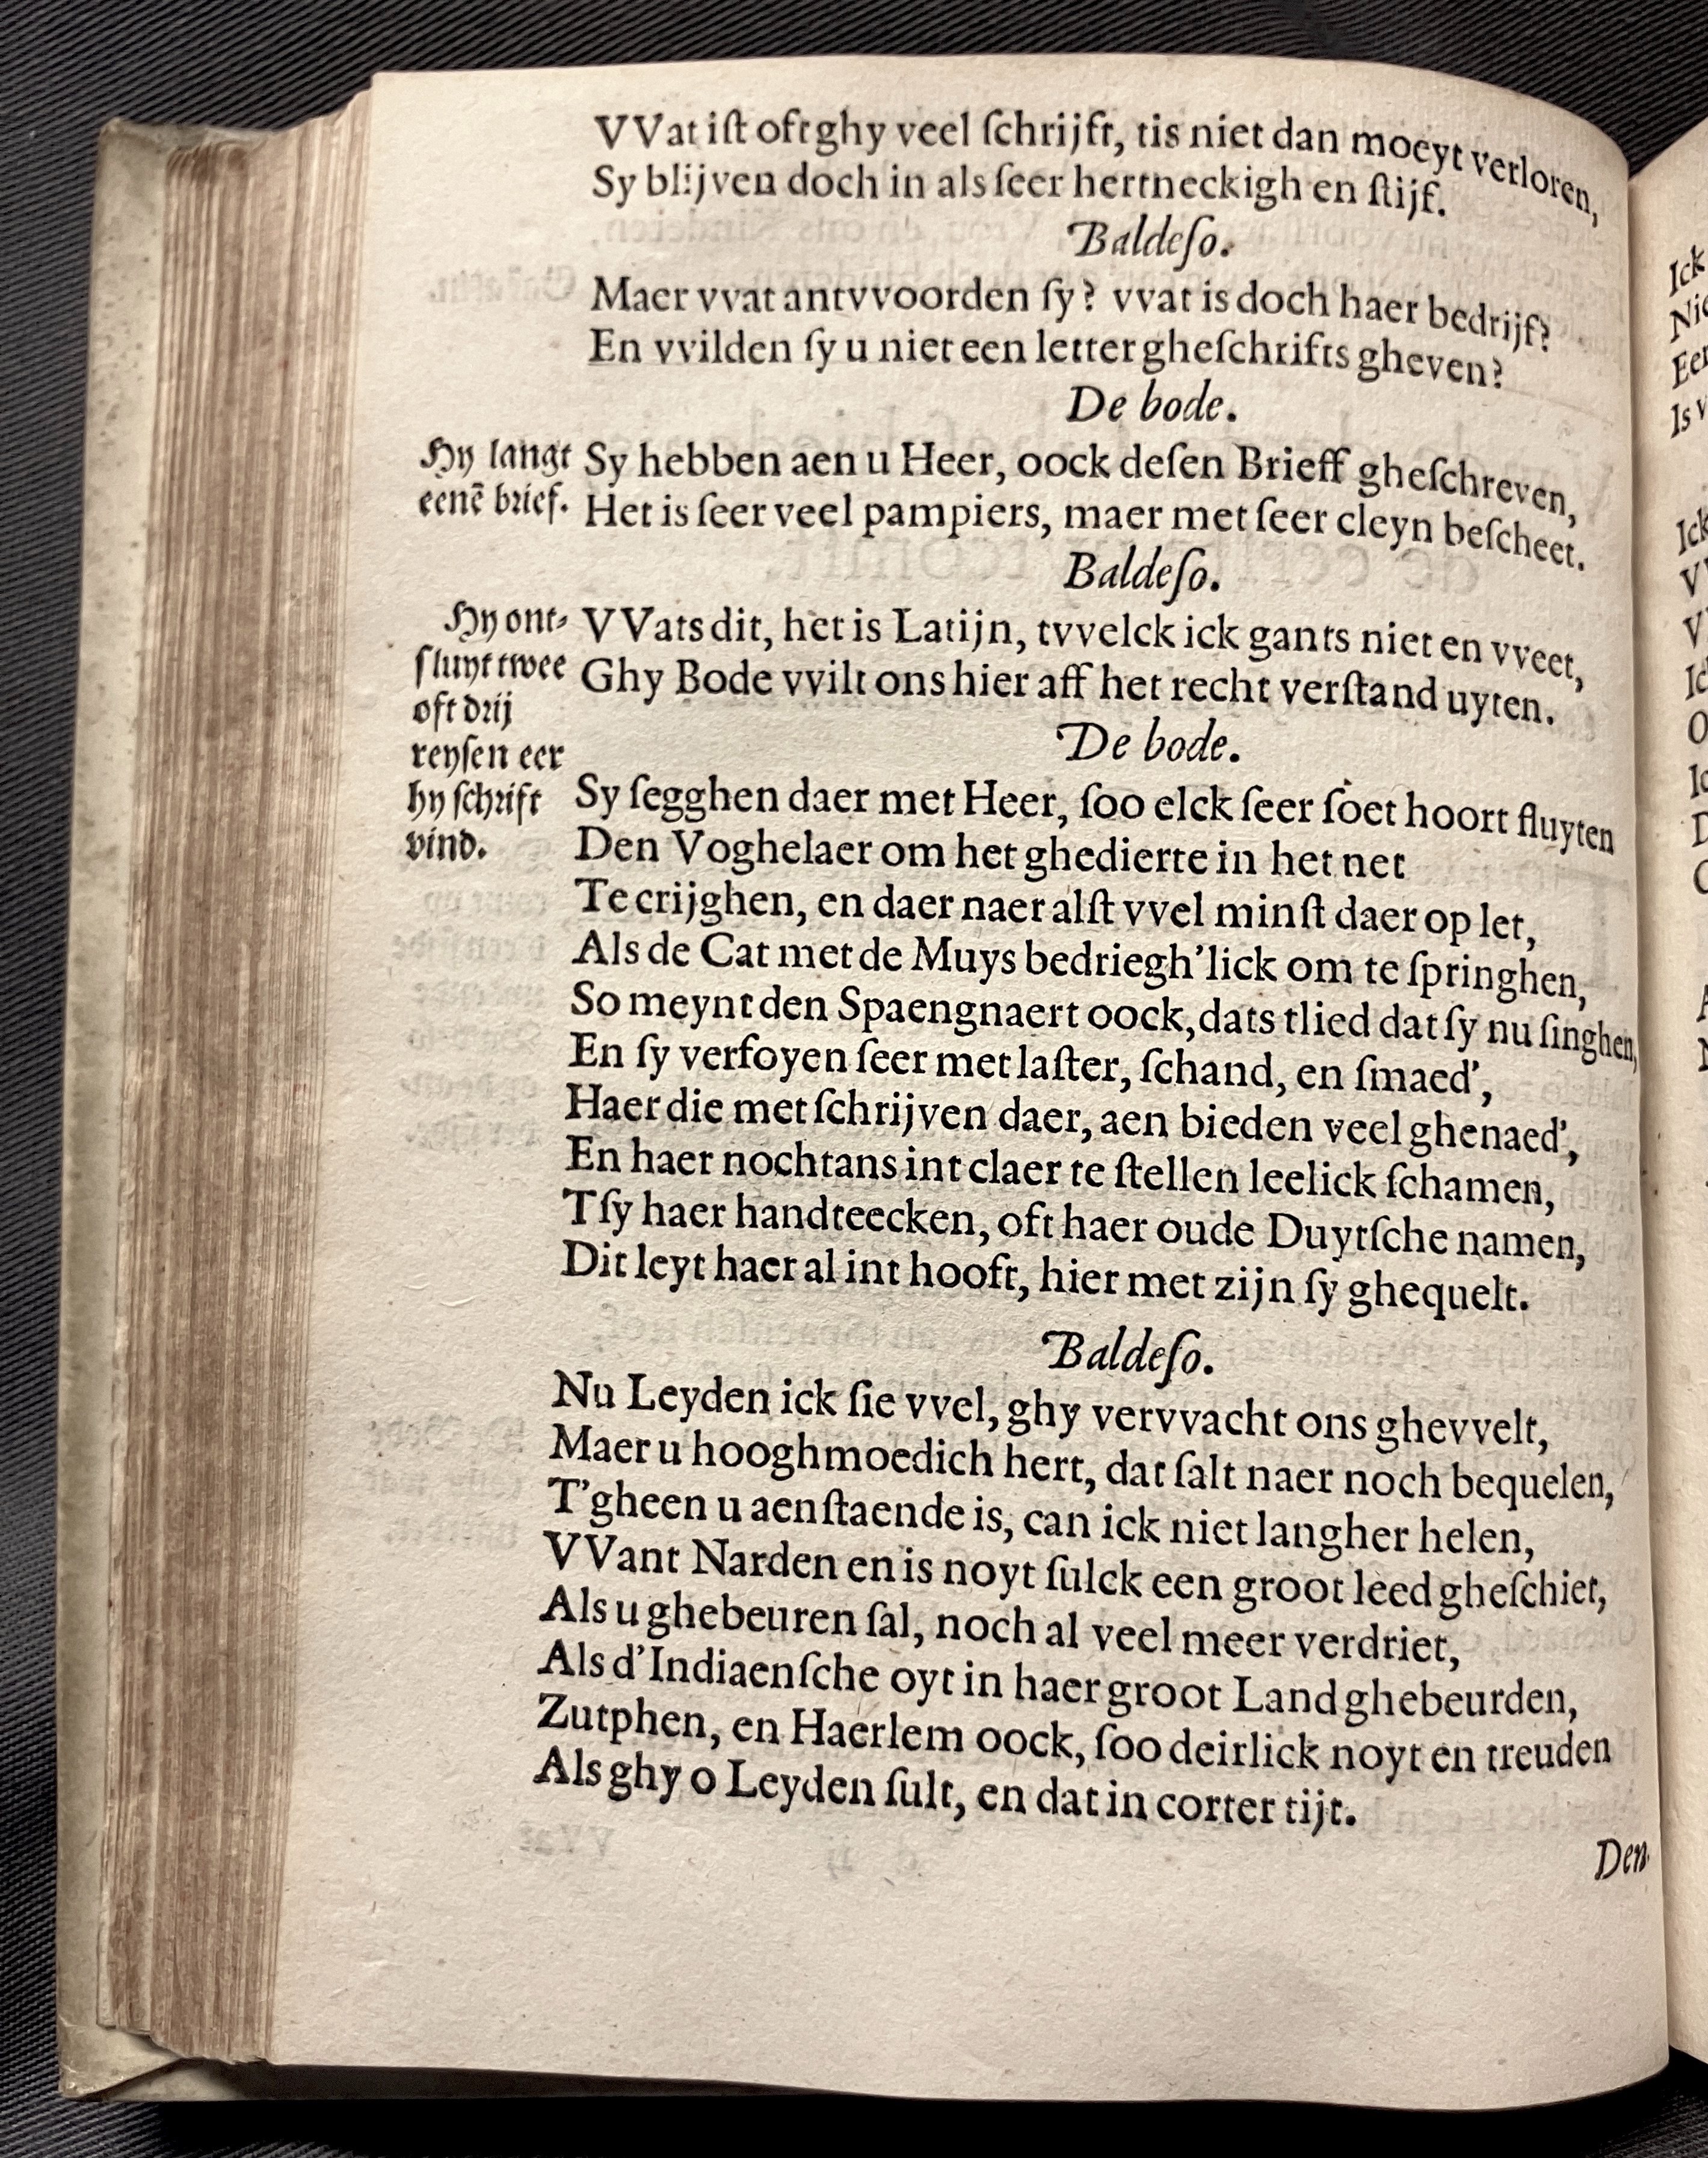 VVat iſt oft ghy veel ſchrijft, tis niet dan moeyt verloren,
Sy blijven doch in als ſeer hertneckigh en ſtijf.
Baldeſo.
Maer vvat antvvoorden ſy? vvat is doch haer bedrijf?
En vvilden ſy u niet een letter gheſchrifts gheven?
De bode.
Hy langt
eenē brief.
Sy hebben aen u Heer, oock deſen Brieff gheſchreven,
Het is ſeer veel pampiers, maer met ſeer cleyn beſcheet.
Baldeſo.
Hy ont-
ſluyt twee
oft drij
reyſen eer
hy ſchrift
vind.
VVats dit, het is Latijn, tvvelck ick gants niet en vveet,
Ghy Bode vvilt ons hier aff het recht verſtand uyten.
De bode.
Sy ſegghen daer met Heer, ſoo elck ſeer ſoet hoort fluyten
Den Voghelaer om het ghedierte in het net
Te crijghen, en daer naer alſt vvel minſt daer op let,
Als de Cat met de Muys bedriegh'lick om te ſpringhen,
So meynt den Spaengnaert oock, dats tlied dat ſy nu ſinghen,
En ſy verfoyen ſeer met laſter, ſchand, en ſmaed',
Haer die met ſchrijven daer, aen bieden veel ghenaed',
En haer nochtans int claer te ſtellen leelick ſchamen,
Tſy haer handteecken, oft haer oude Duytſche namen,
Dit leyt haer al int hooft, hier met zijn ſy ghequelt.
Baldeſo.
Nu Leyden ick ſie vvel, ghy vervvacht ons ghevvelt,
Maer u hooghmoedich hert, dat ſalt naer noch bequelen,
T'gheen u aenſtaende is, can ick niet langher helen,
VVant Narden en is noyt ſulck een groot leed gheſchiet,
Als u ghebeuren ſal, noch al veel meer verdriet,
Als d'Indiaenſche oyt in haer groot Land ghebeurden,
Zutphen, en Haerlem oock, ſoo deirlick noyt en treuden
Als ghy o Leyden ſult, en dat in corter tijt.
Den